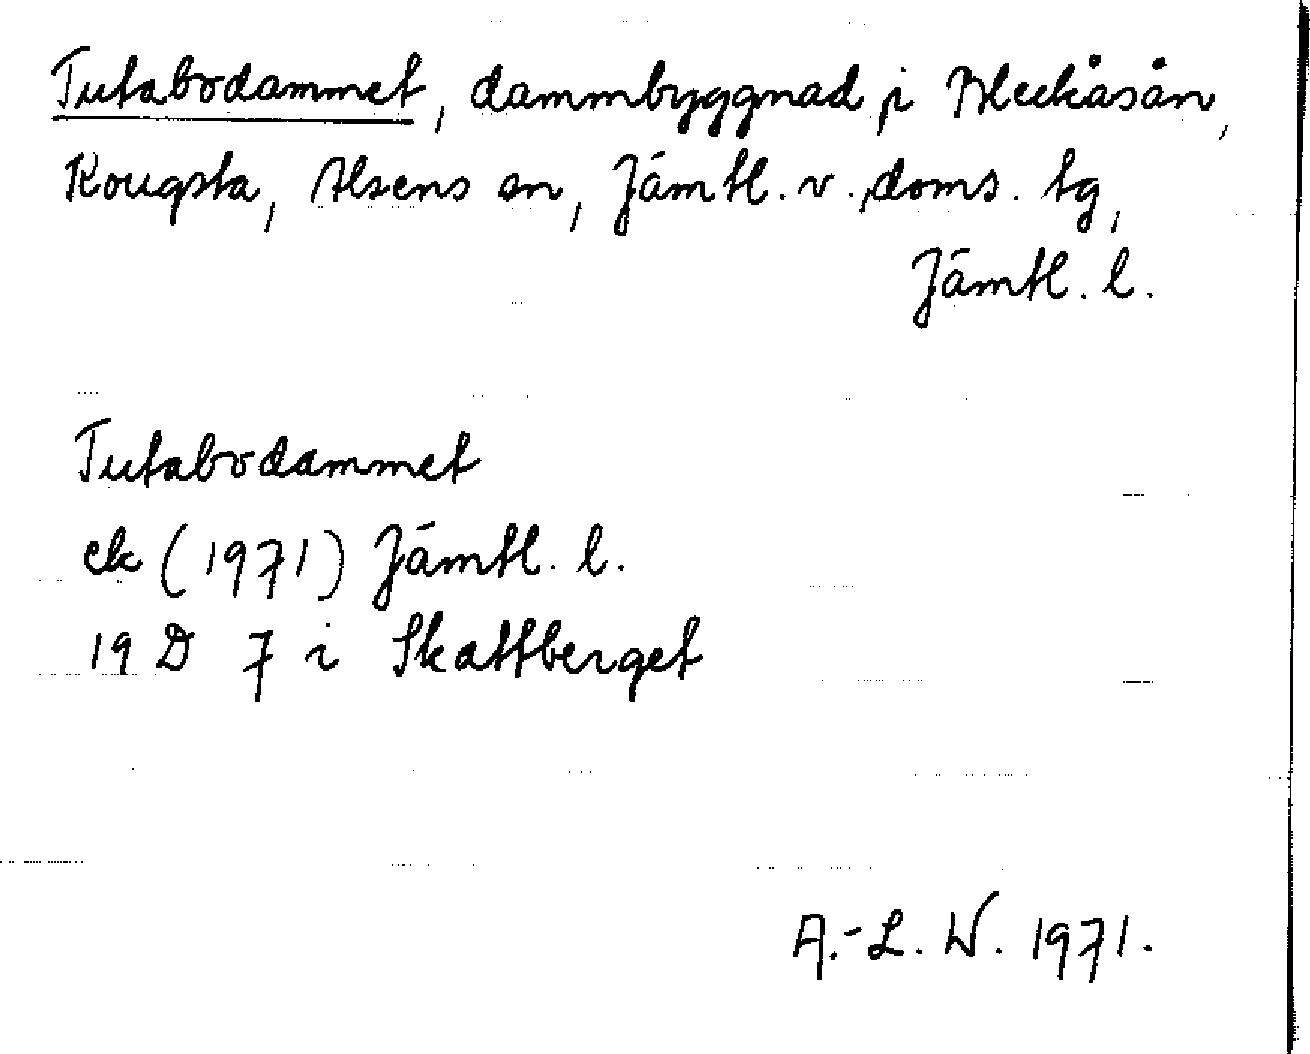 Tutabodammet, dammbyggnad i Bleckåsån,
Kougsta, Alsens sn, Jämtl. v. doms. tg,
Jämtl. l.
Tutabodammet
ek (1971) Jämtl. l.
19 D 7 i Skattberget
A.-L. W. 1971.